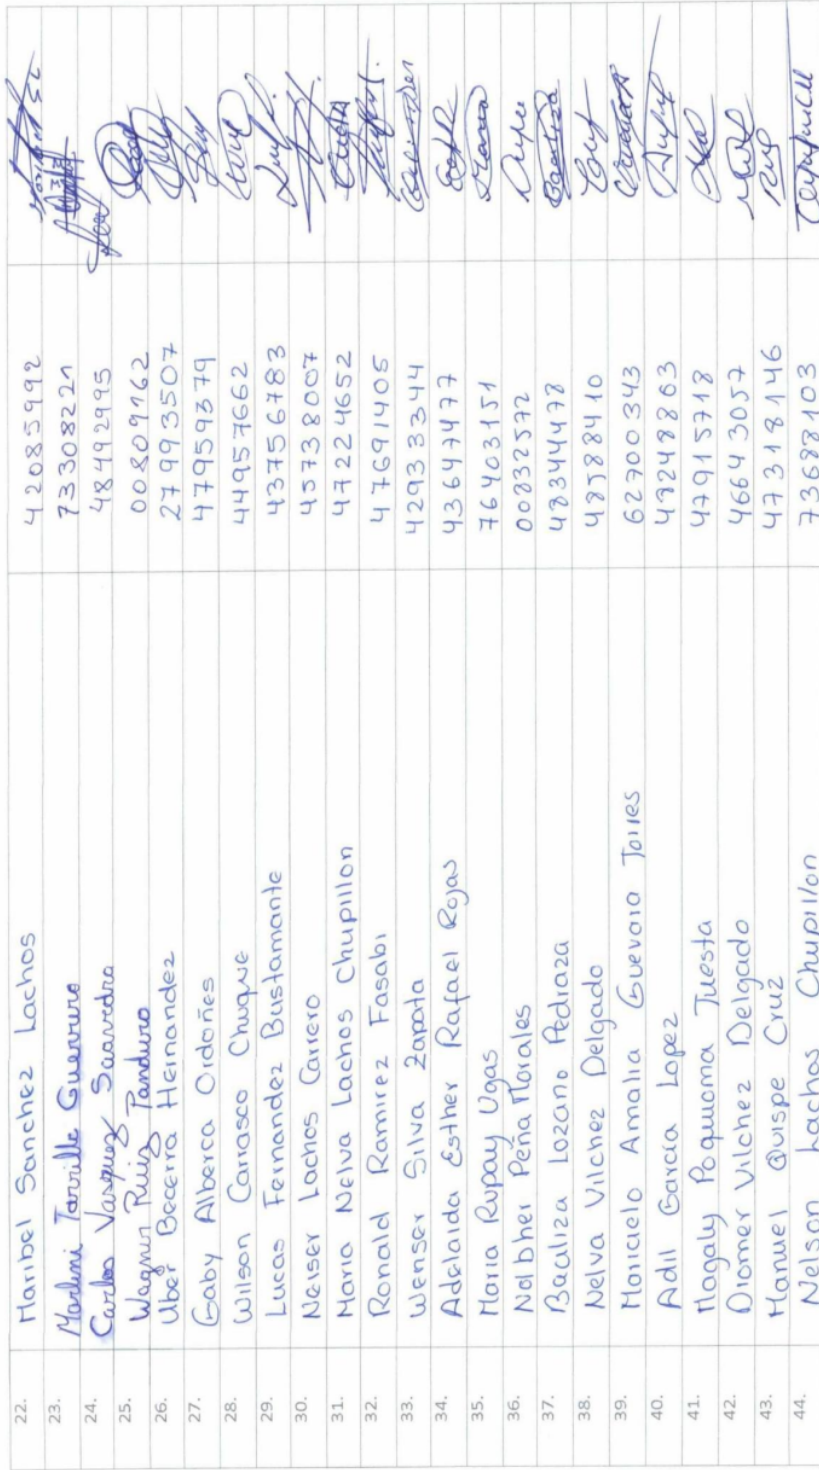 22. Maribel Sanchez Lachos 42085992
23. Marleni Tarrillo Guerrero 73308221
24. Carlos Vasquez Saavedra 48492995
25. Wagner Ruiz Panduro 00809162
26. Uber Becerra Hernandez 27993507
27. Gaby Alberca Ordoñes 47959379
28. Wilson Carrasco Chuque 44957662
29. Lucas Fernandez Bustamante 43756783
30. Neiser Lachos Carrero 45738007
31. Maria Nelva Lachos Chupillon 47224652
32. Ronald Ramirez Fasabi 47691405
33. Wenser Silva Zapata 42933344
34. Adelaida Esther Rafael Rojas 43647477
35. Maria Rupay Ugas 76403151
36. Nolbher Peña Morales 00832572
37. Bauliza Lozano Pedraza 48344478
38. Nelva Vilchez Delgado 48588410
39. Maricielo Amalia Guevara Torres 62700343
40. Adil Garcia Lopez 48248863
41. Magaly Poquioma Tuesta 47915718
42. Diomer Vilchez Delgado 46643057
43. Manuel Quispe Cruz 47318146
44. Nelson Lachos Chupillon 73688103